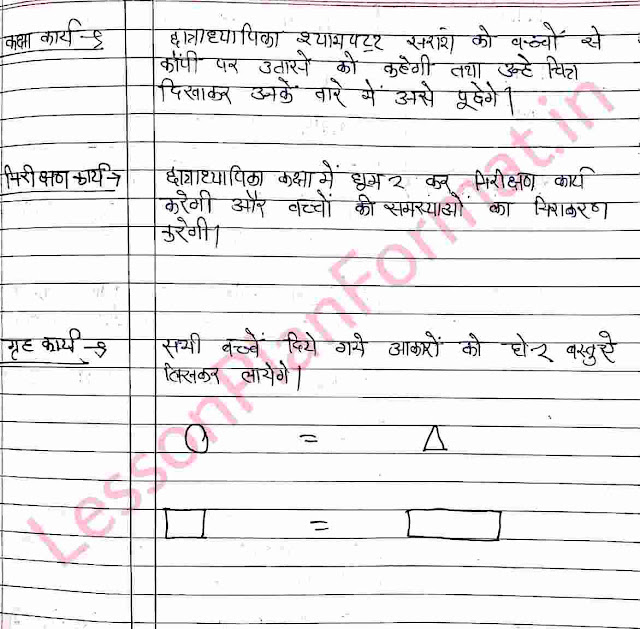 कक्षा कार्य -ś छात्राध्यापिका श्यामपट्ट सरांश को बच्चों से
कॉपी पर उतारने को कहेगी तथा उन्हे चित्र
दिखाकर उनके बारे में उनसे पूछेगे।
निरीक्षण कार्य → छात्राध्यापिका कक्षा में घूम २ कर निरीक्षण कार्य
करेगी और बच्चों की समस्याओं का निराकरण
करेगी।
गृह कार्य - सभी बच्चें दिये गये आकारों को दो-२ वस्तुऐ
लिखकर लायेगे।
=
=
LessonPlanFormat.in